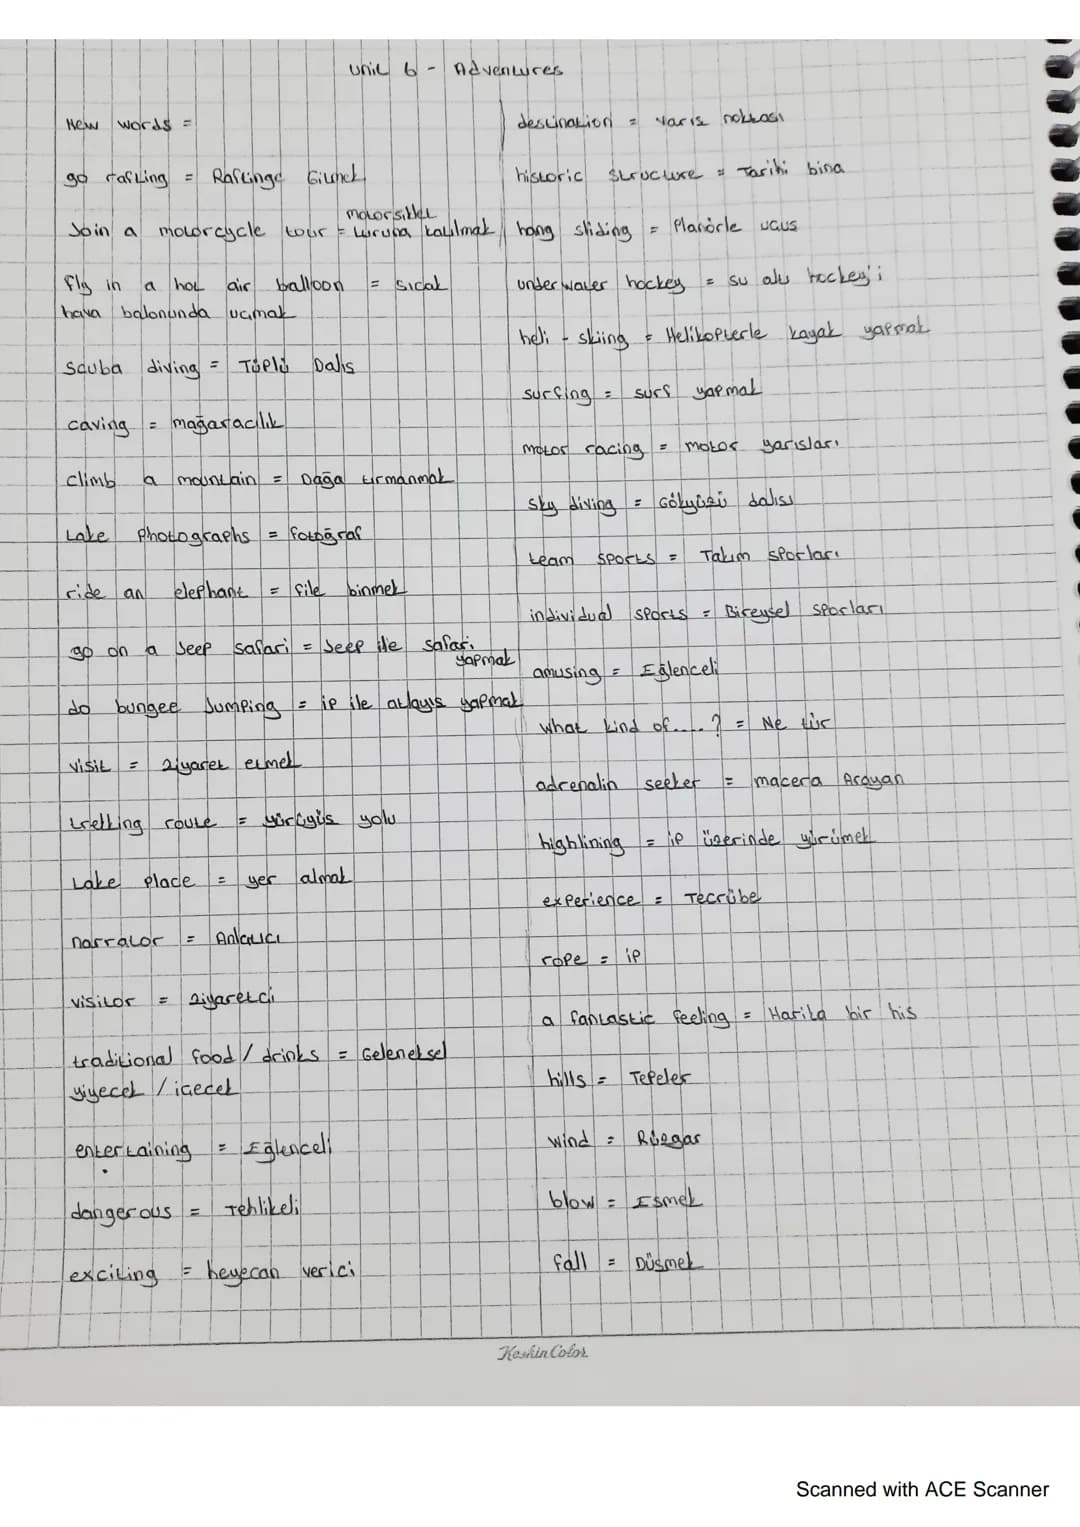 Unit 6 - Adventures
New words =
go rafting = Raftinge Gitmek
Join a motorcycle tour = motorsiklet turuna katılmak
fly in a hot air balloon = sıcak
hava balonunda uçmak
Scuba diving = Tüplü Dalıs
caving = mağaracılık
climb a mountain = Dağa tırmanmak
take photographs = fotoğraf
ride an elephant = file binmek
go on a Jeep safari = Jeep ile safari
yapmak
do bungee Jumping = ip ile atlayıs yapmak
visit = ziyaret etmek
trekking route = yürüyüs yolu
take place = yer almak
narrator = Anlatıcı
visitor = ziyaretci
traditional food / drinks = Geleneksel
yiyecek / icecek
entertaining = Eğlenceli
dangerous = Tehlikeli
exciting = heyecan verici
destination = varıs noktası
historic structure = Tarihi bina
hang sliding = Planörle ucus
underwater hockey = su altı hockey'i
heli - skiing = Helikopterle kayak yapmak
surfing = surf yapmak
motor racing = motor yarısları
sky diving = Gökyüzü dalısı
team sports = Takım sporları
individual sports = Bireysel sporları
amusing = Eğlenceli
what kind of.....? = Ne tür
adrenalin seeker = macera Arayan
highlining = ip üzerinde yürümek
experience = Tecrübe
rope = ip
a fantastic feeling = Harika bir his
hills = Tepeler
wind = Rüzgar
blow = Esmek
fall = Düsmek
Keskin Color
Scanned with ACE Scanner